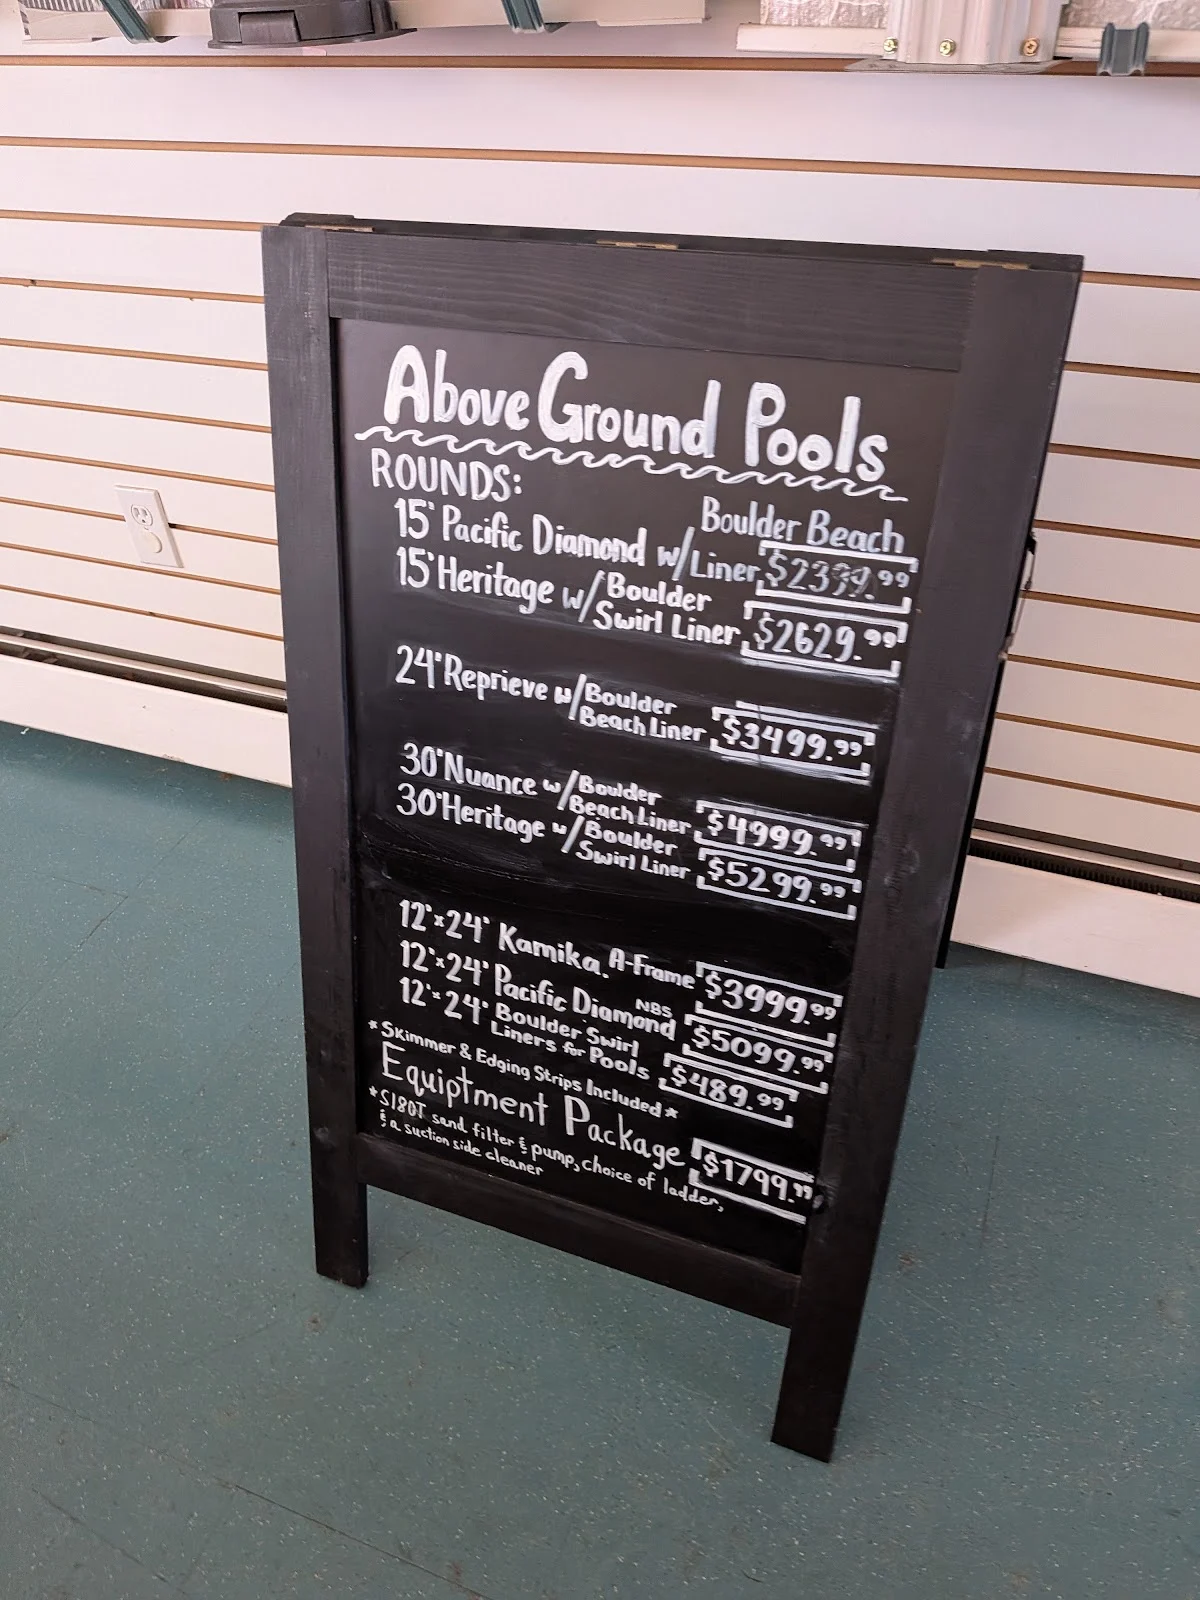 Above Ground Pools
ROUNDS:
Boulder Beach
15' Pacific Diamond w/Liner $2399.99
15' Heritage w/Boulder
Swirl Liner $2629.99
24' Reprieve w/Boulder
Beach Liner $3499.99
30' Nuance w/Boulder
Beach Liner $4999.99
30' Heritage w/Boulder
Swirl Liner $5299.99
12'x24' Kamika. A-Frame $3999.99
12'x24' Pacific Diamond NBS $5099.99
12'x24' Boulder Swirl
Liners for Pools $489.99
*Skimmer & Edging Strips Included*
Equiptment Package $1799.99
*S180T sand filter & pump, choice of ladder,
& a suction side cleaner